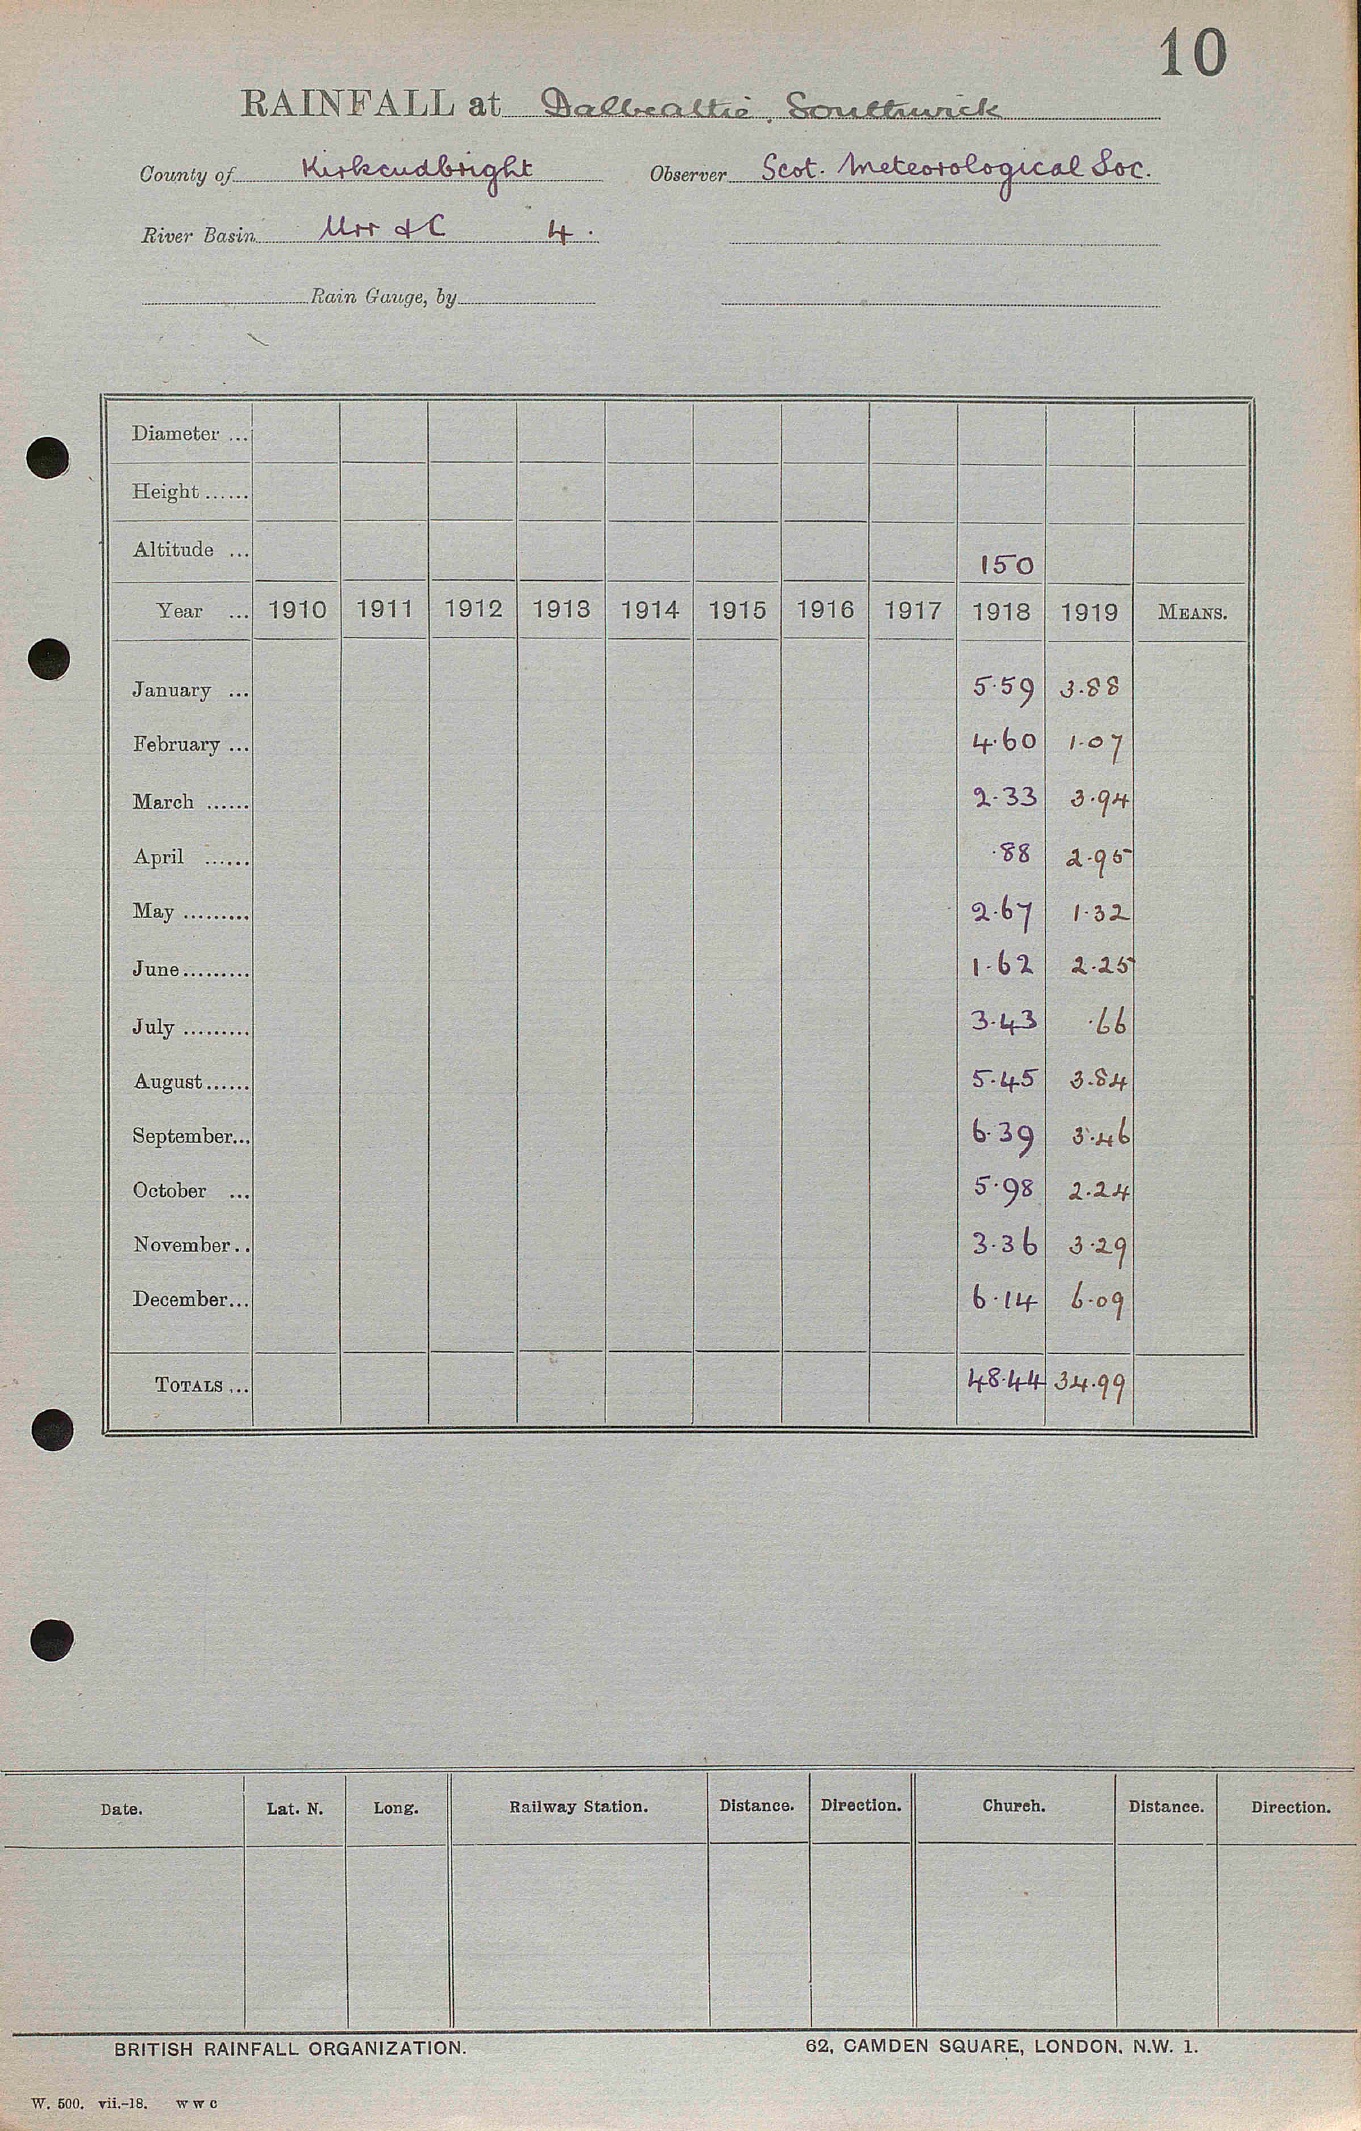 10
RAINFALL at Dalbeattie, Southwick
County of Kirkcudbright Observer Scot. Meteorological Soc.
River Basin Urr & C 4.
Rain Gauge, by
Diameter ...
Height ......
Altitude ... 150
Year ... 1910 1911 1912 1913 1914 1915 1916 1917 1918 1919 MEANS.
January ... 5.59 3.88
February ... 4.60 1.07
March ...... 2.33 3.94
April ...... .88 2.95
May ......... 2.67 1.32
June ......... 1.62 2.25
July ......... 3.43 .66
August ...... 5.45 3.84
September... 6.39 3.46
October ... 5.98 2.24
November .. 3.36 3.29
December... 6.14 6.09
TOTALS ... 48.44 34.99
Date. Lat. N. Long. Railway Station. Distance. Direction. Church. Distance. Direction.
BRITISH RAINFALL ORGANIZATION. 62, CAMDEN SQUARE, LONDON, N.W. 1.
W. 500. vii.-18. W W C